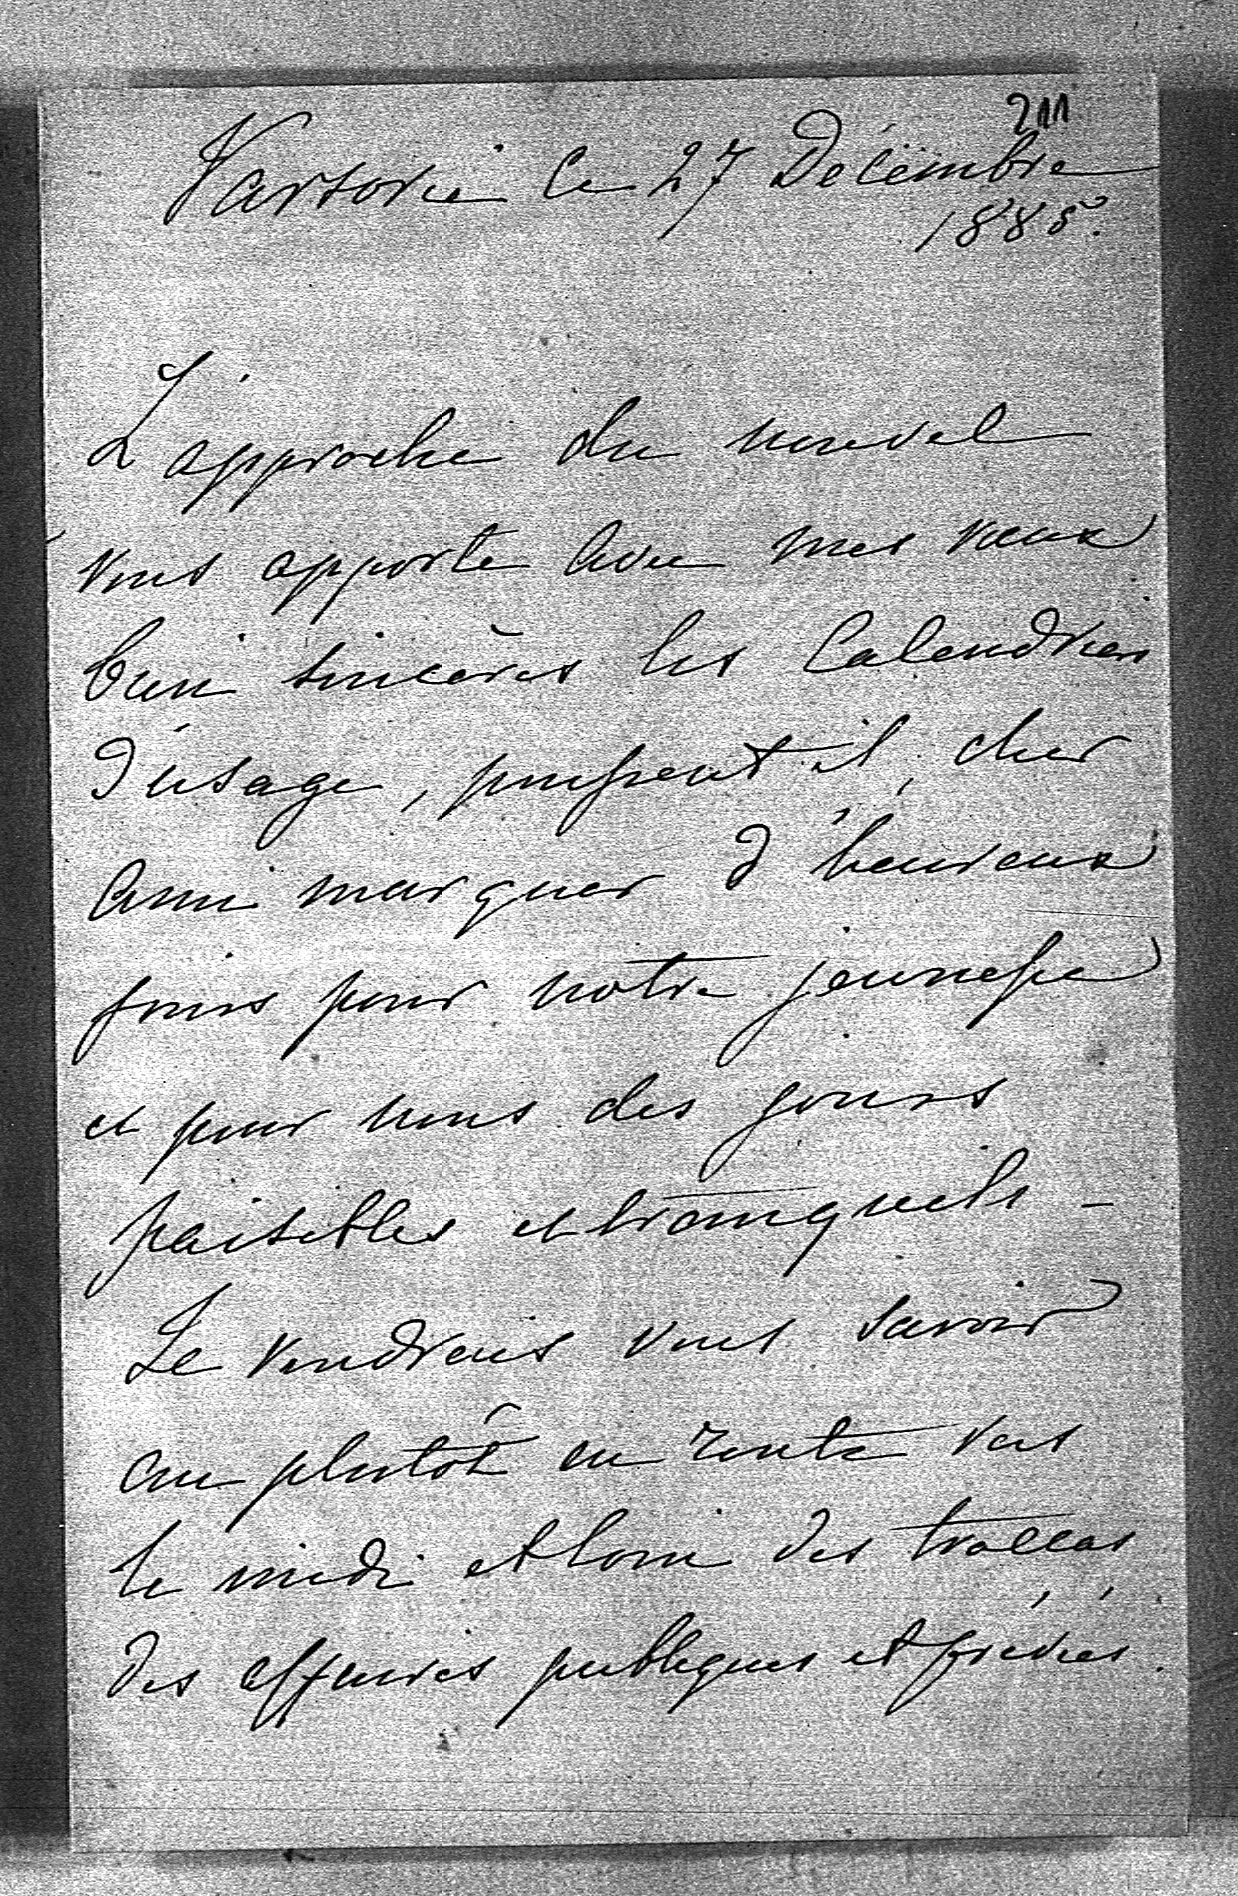 211
Varsovie Ce 27 Décembre
1885.
L'approche du nouvel
vous apporte avec mes vœux
bien sincères les Calendriers
d'usage, puissent il, cher
Ami marquer d'heureux
jours pour notre jeunesse
et pour nous des jours
paisibles et tranquils -
Je voudrais vous savoir
au plutôt en route vers
le midi et loin des traccas
des affaires publiques et privées.